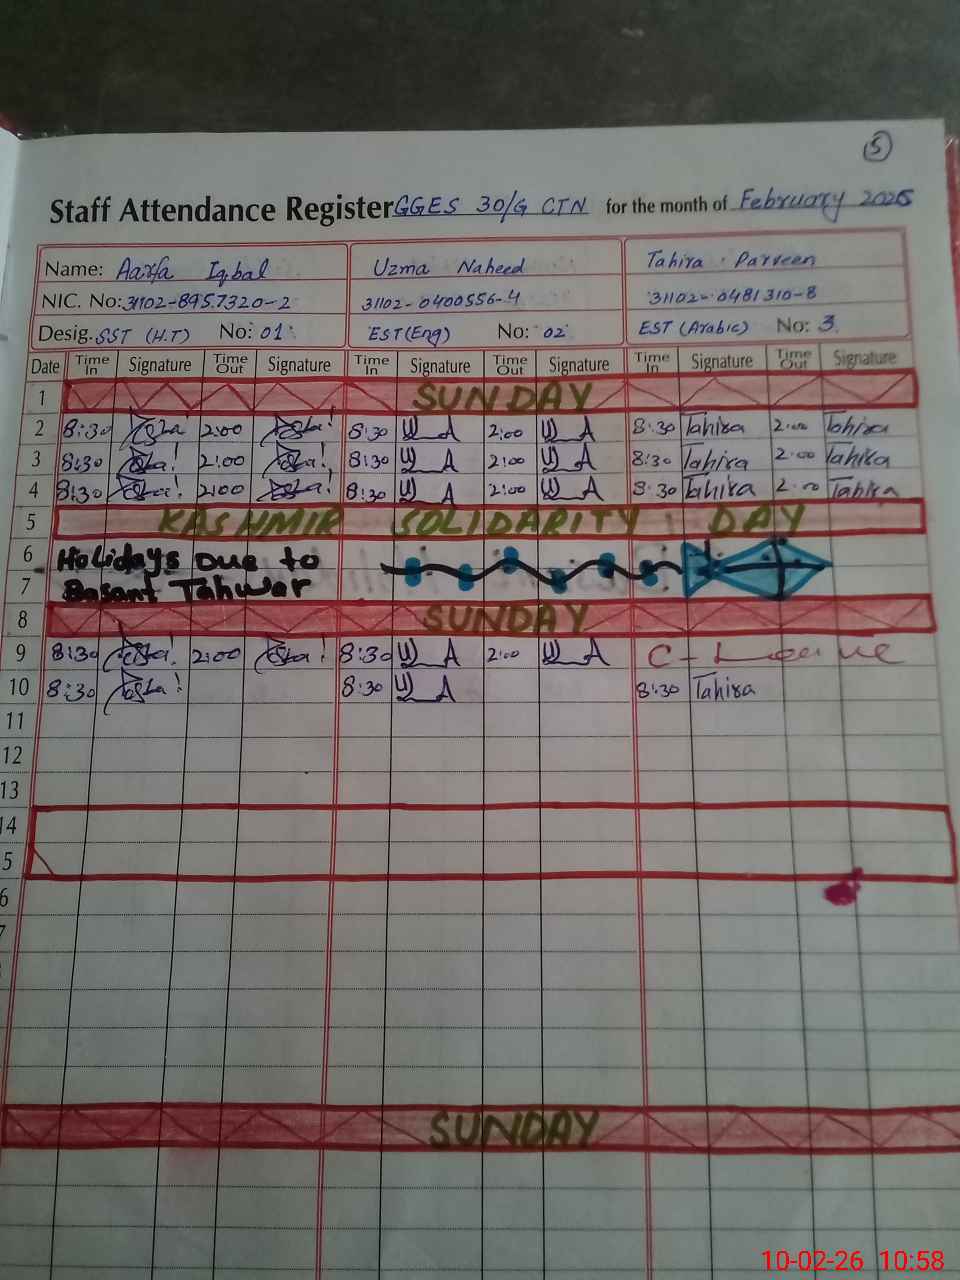 5
Staff Attendance Register GGES 30/G CTN for the month of February 2026
Name: Aarfa Iqbal Uzma Naheed Tahira Parveen
NIC. No: 31102-8957320-2 31102-0400556-4 31102-0481310-8
Desig. SST (H.T) No: 01 EST(Eng) No: 02 EST (Arabic) No: 3
Date Time In Signature Time Out Signature Time In Signature Time Out Signature Time In Signature Time Out Signature
1 SUNDAY
2 8:30 2:00 8:30 U A 2:00 U A 8:30 Tahira 2:00 Tahira
3 8:30 2:00 8:30 U A 2:00 U A 8:30 Tahira 2:00 Tahira
4 8:30 2:00 8:30 U A 2:00 U A 8:30 Tahira 2:00 Tahira
5 KASHMIR SOLIDARITY DAY
6 Holidays Due to
7 Basant Tahwar
8 SUNDAY
9 8:30 2:00 8:30 U A 2:00 U A C-Leave
10 8:30 8:30 U A 8:30 Tahira
11
12
13
14
5
6
7
SUNDAY
10-02-26 10:58